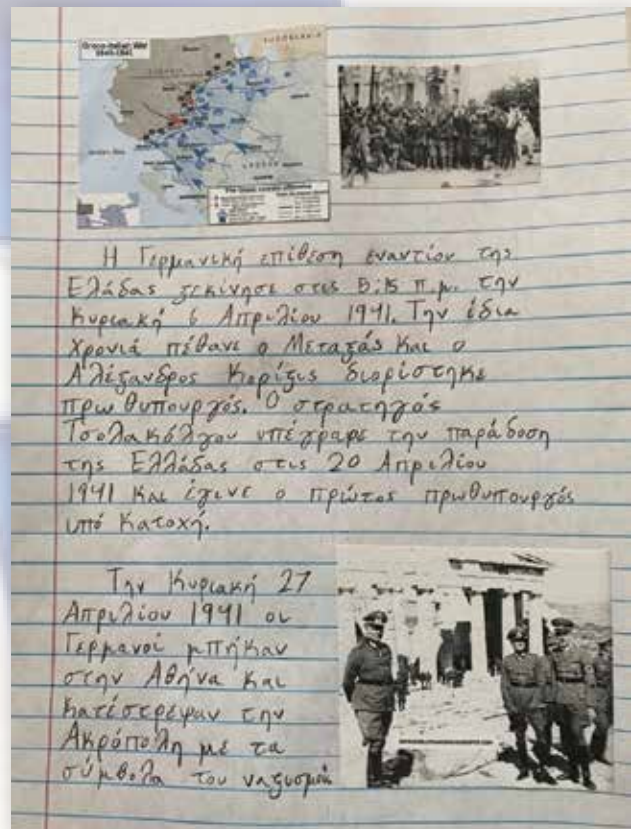 Greco-Italian War
1940-1941
Η Γερμανική επίθεση εναντίον της
Ελάδας ξεκίνησε στις 5:15 π.μ. την
Κυριακή 6 Απριλίου 1941. Την ίδια
χρονιά πέθανε ο Μεταξάς και ο
Αλέξανδρος Κορίζις διορίστηκε
πρωθυπουργός. Ο στρατηγός
Τσολακόλγου υπέγραψε την παράδοση
της Ελλάδας στις 20 Απριλίου
1941 και έγινε ο πρώτος πρωθυπουργός
υπό κατοχή.
Την Κυριακή 27
Απριλίου 1941 οι
Γερμανοί μπήκαν
στην Αθήνα και
κατέστρεψαν την
Ακρόπόλη με τα
σύμβολα του ναζισμού